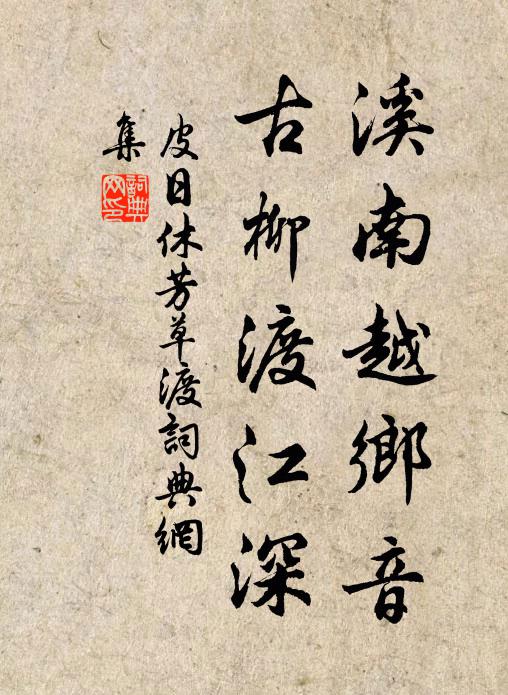 溪南越鄉音
古柳渡江深
皮日休芳草渡詞典網
集
詞典
网印